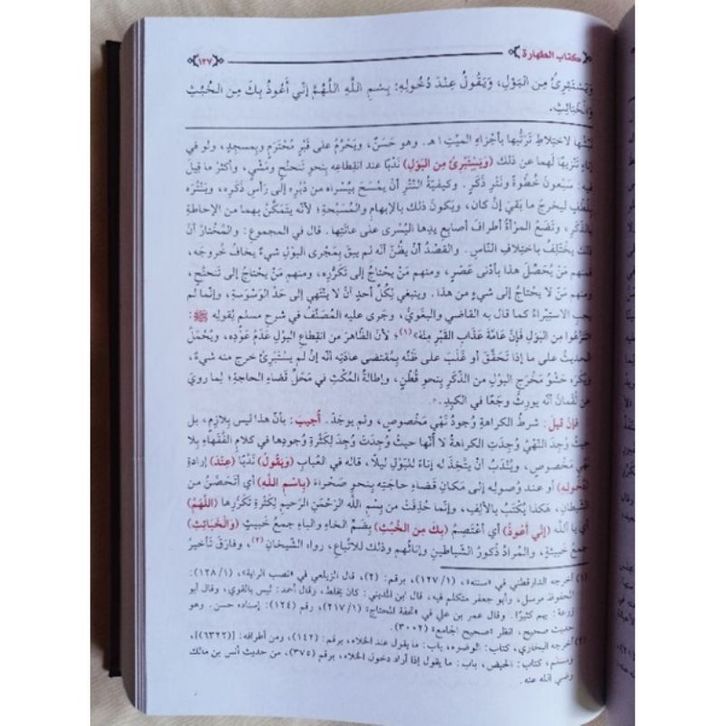 كتاب الطهارة
١٢٧
وَيَسْتَبْرِئُ مِنَ البَوْلِ، وَيَقُولُ عِنْدَ دُخُولِهِ: بِسْمِ اللَّهِ اللَّهُمَّ إِنِّي أَعُوذُ بِكَ مِنَ الخُبْثِ
وَالخَبَائِثِ.
لبثها لاختلاطِ تُرْبَتِها بأجزاء الميِّتِ اهـ. وهو حَسَنٌ، ويَحْرُمُ على قَبْرٍ مُحْتَرَمٍ وبِمسجدٍ، ولو في
إناءٍ تَنْزِيهًا لَهما عن ذلك (وَيَسْتَبْرِئُ مِنَ البَوْلِ) نَدْبًا عند انقطاعِه بِنحو تَنَحْنُحٍ ومَشْيٍ، وأكثرُ ما قيلَ
فيه: سَبعونَ خُطوةً ونَتْرِ ذَكَرٍ. وكيفيَّةُ النَّتْرِ أنْ يَمْسَحَ بيُسراه من دُبُرِه إلى رَأسِ ذَكَرِه، ويَنْتُرَه
بِلُطْفٍ ليخرجَ ما بَقيَ إنْ كان، ويَكونُ ذلك بالإبهامِ والمُسَبِّحةِ؛ لأنَّه يَتمكَّنُ بهما من الإحاطةِ
بالذَّكَرِ، وتَضَعُ المرأةُ أطرافَ أصابعِ يدِها اليُسْرى على عانَتِها. قال في المجموعِ: والمُخْتارُ أنَّ
ذلك يَخْتَلِفُ باختلافِ النَّاسِ. والقَصْدُ أنْ يظُنَّ أنَّه لم يبقَ بِمَجْرى البَوْلِ شيءٌ يخافُ خُروجَه،
فمنهم مَنْ يَحْصُلُ هذا بأدْنى عَصْرٍ، ومنهم مَنْ يَحْتاجُ إلى تَكَرُّرِه، ومنهم مَنْ يحتاجُ إلى تَنَحْنُحٍ،
ومنهم مَنْ لا يَحْتاجُ إلى شيءٍ من هذا. وينبغي لِكُلِّ أحدٍ أنْ لا يَنْتَهي إلى حَدِّ الوَسْوَسةِ، وإنَّما لم
يجبِ الاستِبْراءُ كما قال به القاضي والبغويُّ، وجَرى عليه المُصَنِّفُ في شرحِ مسلمٍ لِقولِه ﷺ:
«تَنَزَّهُوا مِنَ البَوْلِ فَإِنَّ عَامَّةَ عَذَابِ القَبْرِ مِنْهُ»(١)؛ لأنَّ الظَّاهرَ من انقطاعِ البَوْلِ عَدَمُ عَوْدِه، ويُحْمَلُ
الحديثُ على ما إذا تَحَقَّقَ أو غَلَبَ على ظَنِّه بِمُقتضى عادَتِه أنَّه إنْ لم يَستبرئْ خرج منه شيءٌ،
ويُكْرَه حَشْوُ مَخْرَجِ البَوْلِ من الذَّكَرِ بِنحوِ قُطْنٍ، وإطالةُ المُكْثِ في مَحَلِّ قضاءِ الحاجةِ؛ لِما رويَ
عن لُقْمانَ أنَّه يورِثُ وجَعًا في الكَبِدِ.
فإنْ قيلَ: شرطُ الكراهةِ وُجودُ نَهْيٍ مَخْصوصٍ، ولم يوجَدْ. أُجيبَ: بأنَّ هذا ليس بِلازِمٍ، بل
حيثُ وُجِدَ النَّهيُ وُجِدَتِ الكراهةُ لا أنَّها حيثُ وُجِدَتْ وُجِدَ لِكَثْرةِ وُجودِها في كلامِ الفُقَهاءِ بلا
نَهْيٍ مَخْصوصٍ، ويُنْدَبُ أنْ يَتَّخِذَ له إناءً للبَوْلِ ليلًا، قاله في العُبابِ (وَيَقُولُ) نَدْبًا (عِنْدَ) إرادةِ
(دُخُولِهِ) أو عند وُصولِه إلى مَكانِ قَضاءِ حاجَتِه بِنحو صَحْراءَ (بِاسْمِ اللَّهِ) أي أتَحَصَّنُ من
الشيطانِ، هَكذا يُكتَبُ بالألِفِ، وإنَّما حُذِفَتْ من بسْمِ الله الرَّحْمَنِ الرحيمِ لِكَثْرةِ تَكَرُّرِها (اللَّهُمَّ)
أي يا اَللَّه (إِنِّي أَعُوذُ) أي أعْتَصِمُ (بِكَ مِنَ الخُبُثِ) بِضَمِّ الخاءِ والباءِ جَمعُ خَبيثٍ (وَالخَبَائِثِ)
جمعُ خَبيثةٍ، والمُرادُ ذُكورُ الشَّياطينِ وإناثُهم وذلك للاتِّباعِ، رواه الشَّيخانِ(٢)، وفارَقَ تَأخيرَ
(١) أخرجه الدارقطني في «سننه»، (١/١٢٧)، برقم: (٢)، قال الزيلعي في «نصب الراية»، (١/١٢٨):
المحفوظ مرسل، وأبو جعفر متكلم فيه، قال ابن المديني: كان يخلط، وقال أحمد: ليس بالقوي، وقال أبو
زرعة: يهم كثيرًا. وقال عمر بن علي في «تحفة المحتاج»، (١/٢١٧)، رقم (١٢٤): إسناده حسن. وهو
حديث صحيح، انظر «صحيح الجامع» (٣٠٠٢).
(٢) أخرجه البخاري، كتاب: الوضوء، باب: ما يقول عند الخلاء، برقم: (١٤٢)، ومن أطرافه: [(٦٣٢٢)]،
ومسلم، كتاب: الحيض، باب: ما يقول إذا أراد دخول الخلاء، برقم (٣٧٥)، من حديث أنس بن مالك
رضي الله عنه.